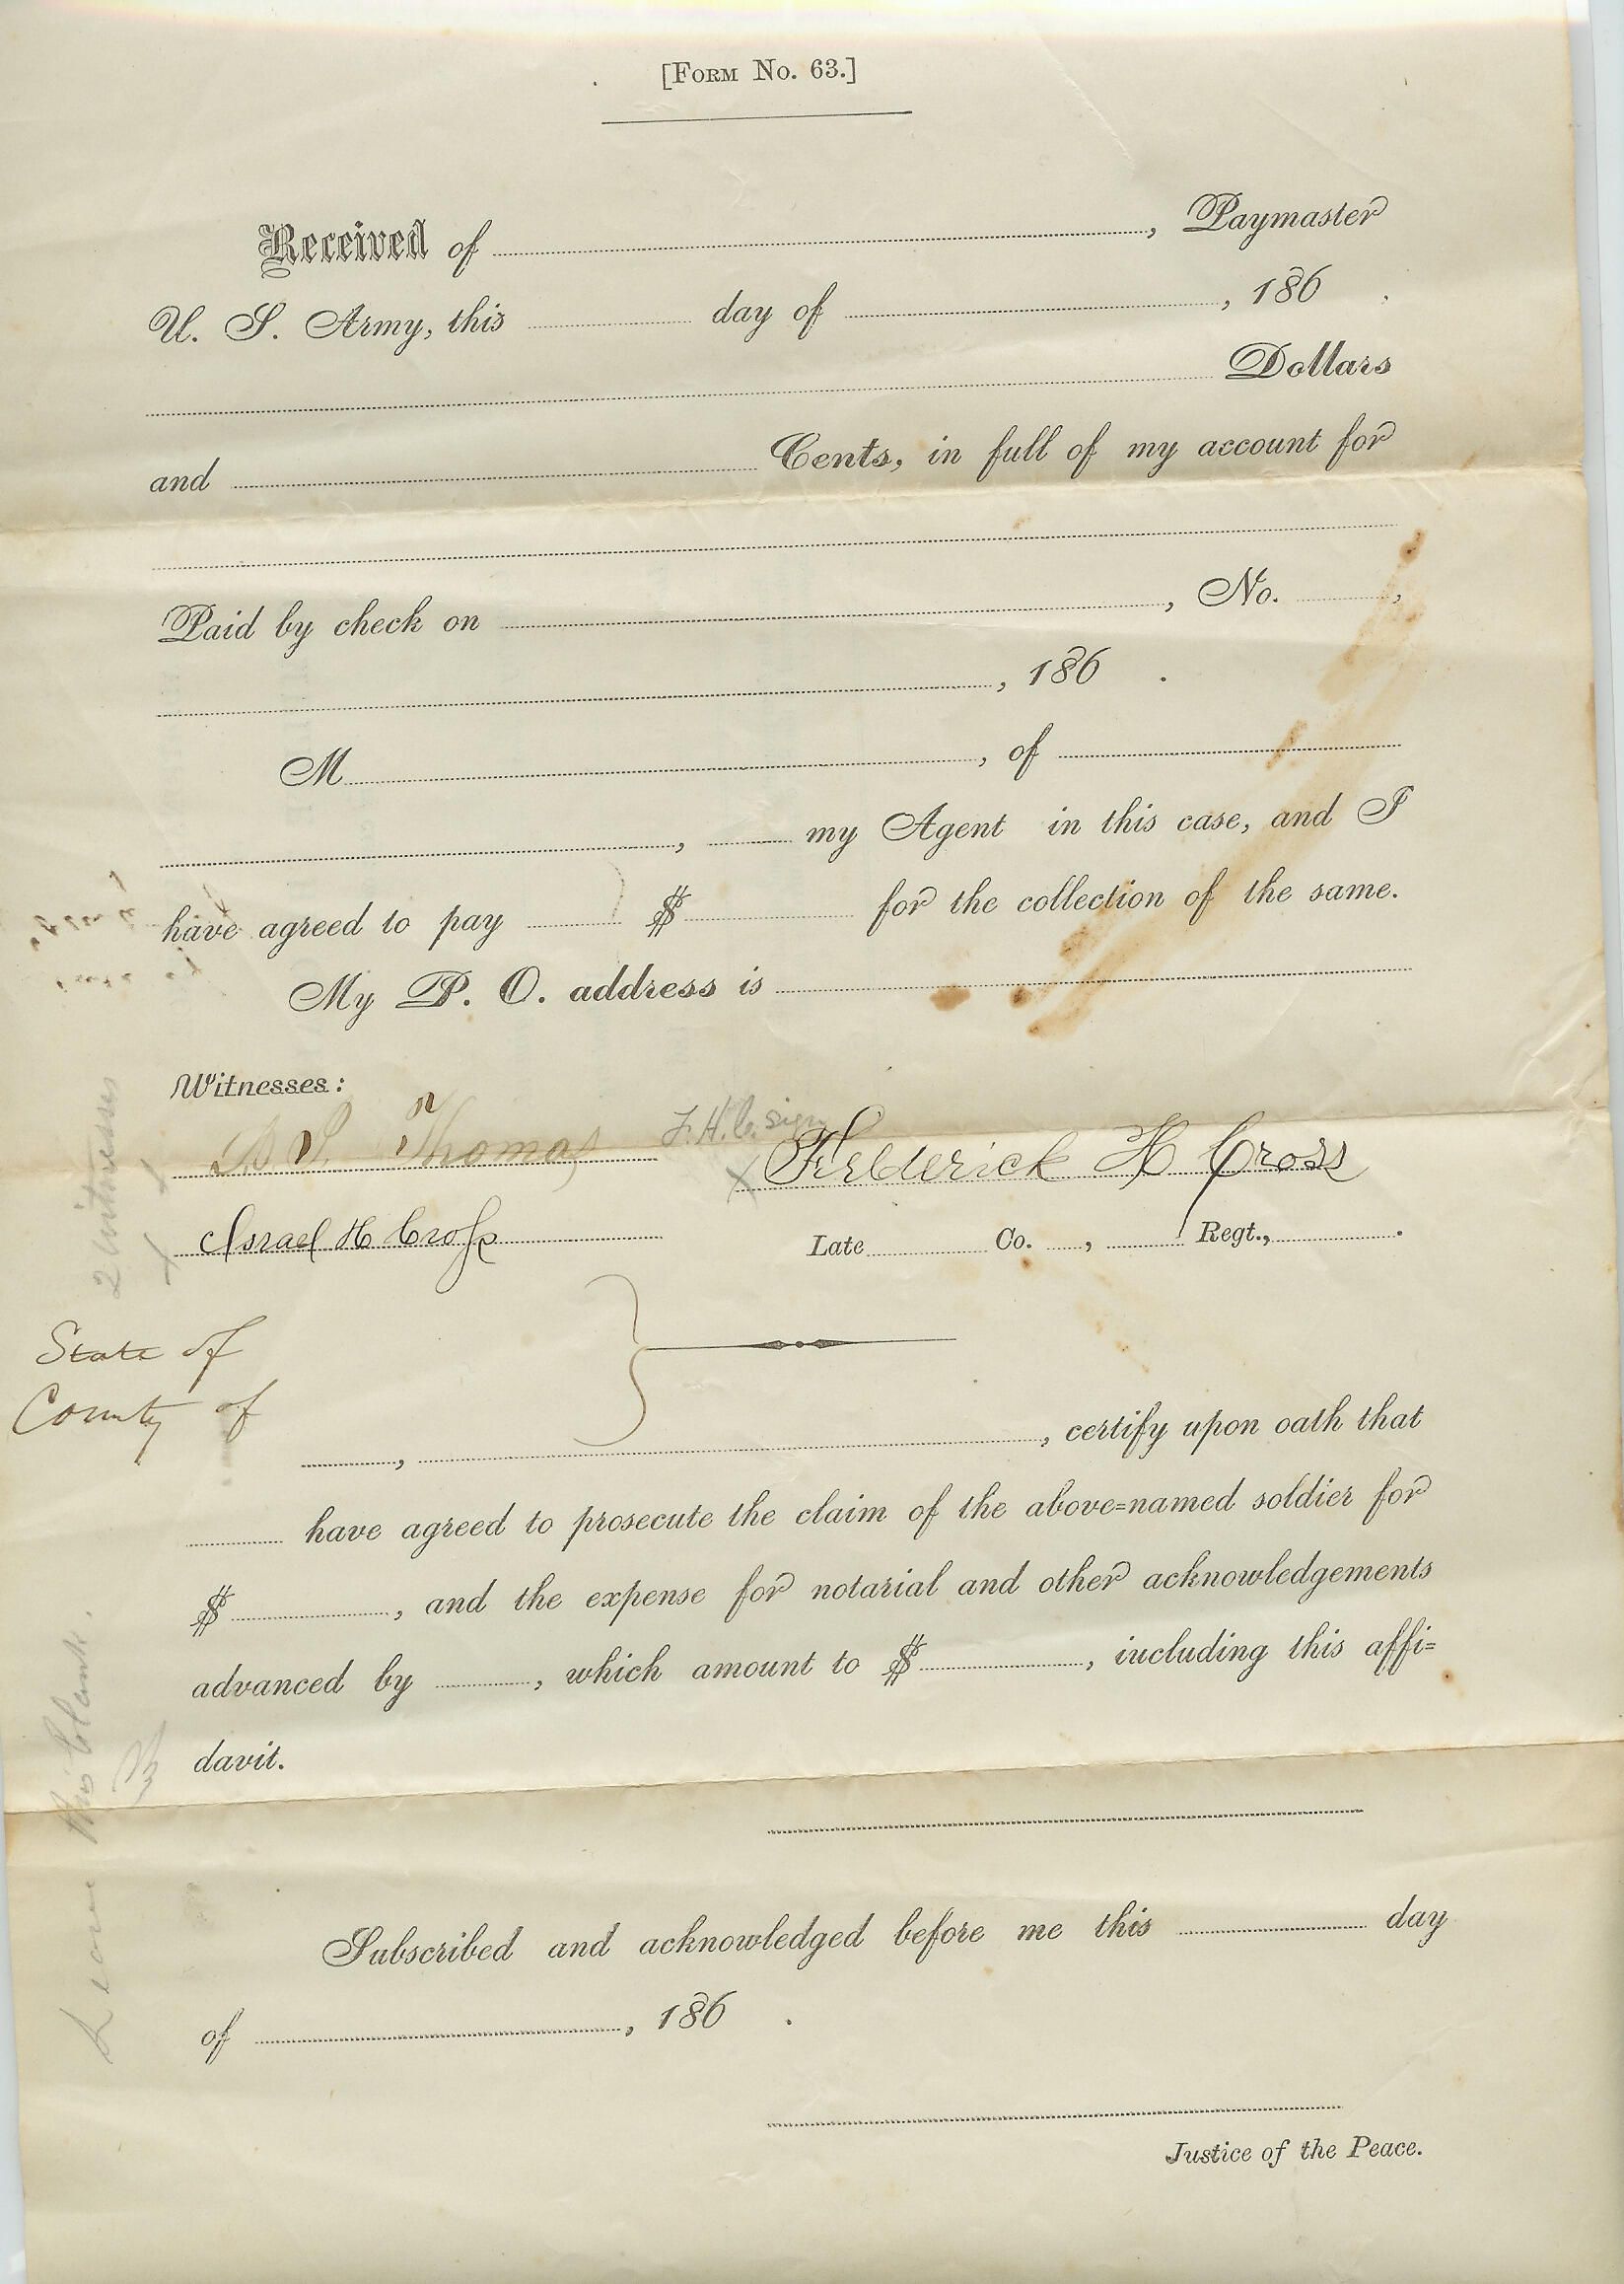 [FORM No. 63.]
Received of , Paymaster
U. S. Army, this day of , 186 .
Dollars
and Cents, in full of my account for
Paid by check on , No. ,
, 186 .
M , of
, my Agent in this case, and I
have agreed to pay $ for the collection of the same.
My P. O. address is
Witnesses:
Thomas F. H. C. sign
x Frederick H Cross
Israel H Croſs
Late Co. , Regt., .
2 Witnesses
x x
State of
County of
, , certify upon oath that
have agreed to prosecute the claim of the above=named soldier for
$ , and the expense for notarial and other acknowledgements
advanced by , which amount to $ , including this affi=
davit.
Leave this blank.
Subscribed and acknowledged before me this day
of , 186 .
Justice of the Peace.